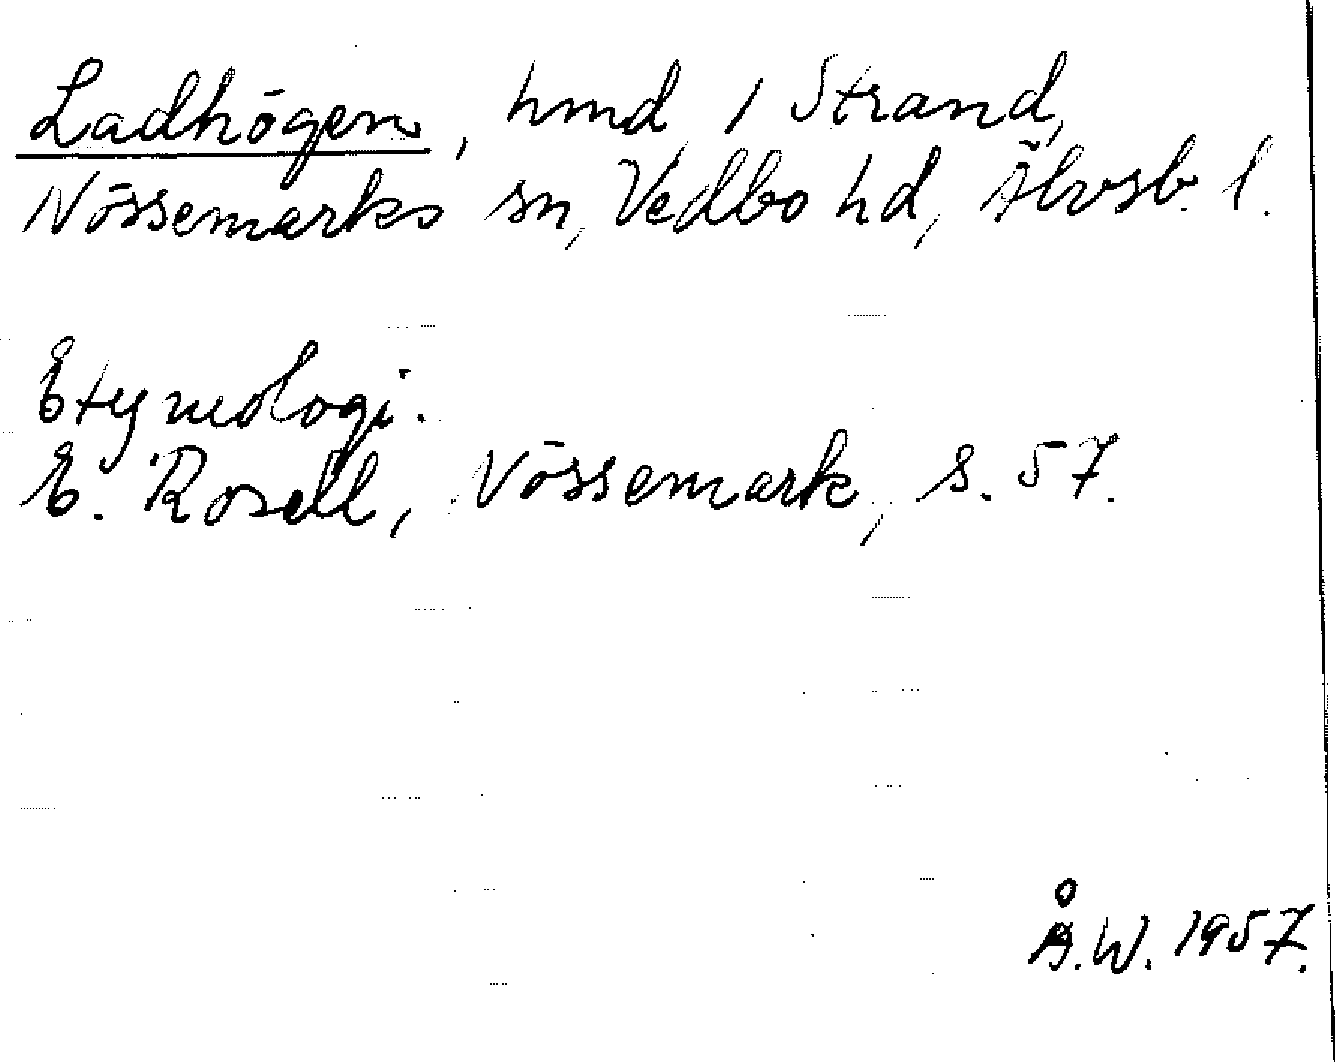 Ladhögen, hmd / Strand,
Nössemarks sn, Vedbo hd, Älvsb. l.
Etymologi.
E. Rosell, Nössemark, s. 57.
Å.W. 1957.